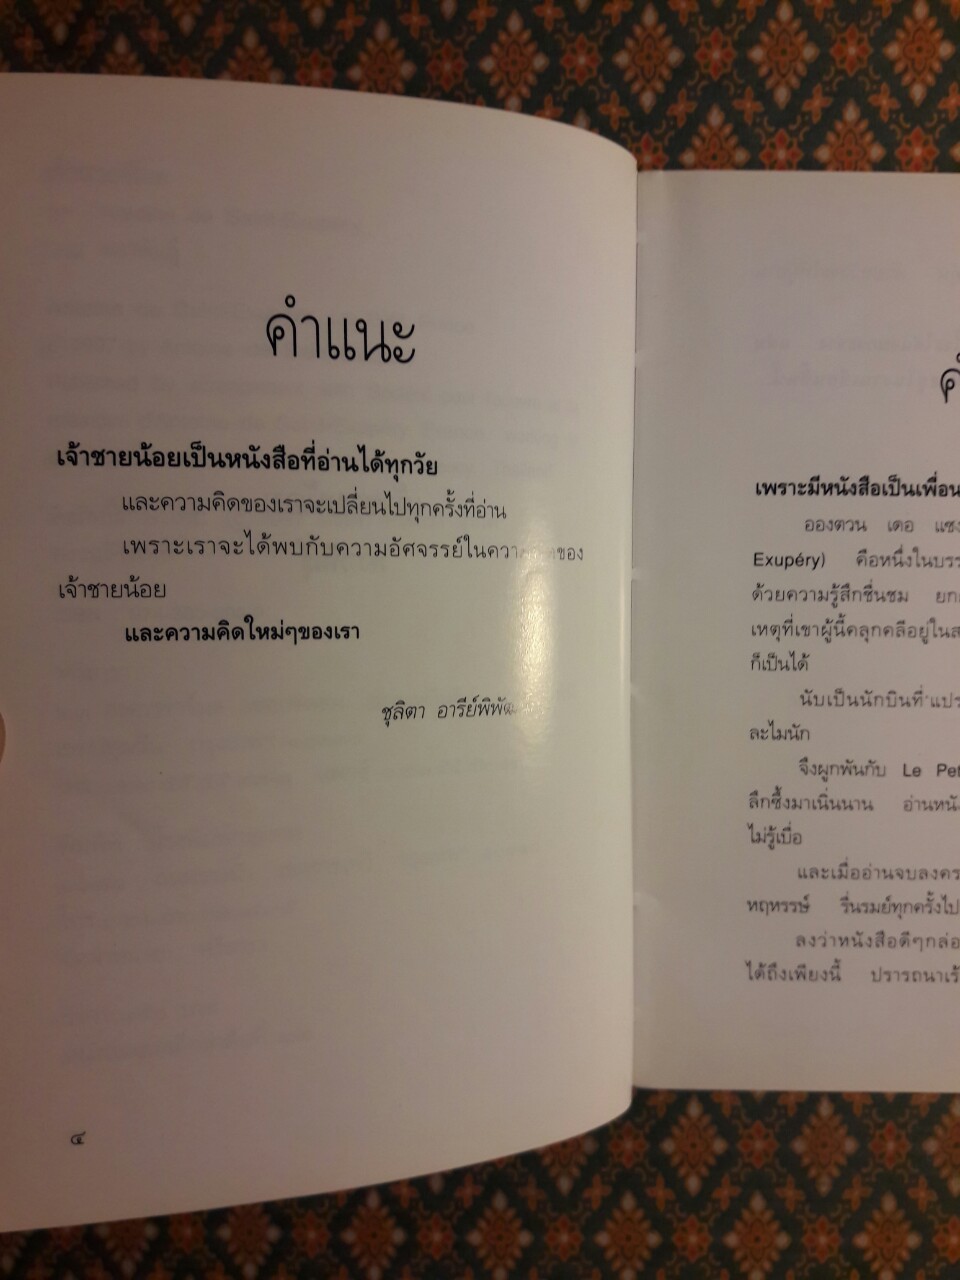 คำแนะ
เจ้าชายน้อยเป็นหนังสือที่อ่านได้ทุกวัย
และความคิดของเราจะเปลี่ยนไปทุกครั้งที่อ่าน
เพราะเราจะได้พบกับความอัศจรรย์ในความคิดของ
เจ้าชายน้อย
และความคิดใหม่ๆของเรา
ชุลิตา
๔
เพราะมีหนังสือเป็นเพื่อน
อองตวน เดอ แซง
Exupéry) คือหนึ่งในบรร
ด้วยความรู้สึกชื่นชม ยก
เหตุที่เขาผู้นี้คลุกคลีอยู่ในส
ก็เป็นได้
นับเป็นนักบินที่แปร
ละไมนัก
จึงผูกพันกับ Le Pet
ลึกซึ้งมาเนิ่นนาน อ่านหนั
ไม่รู้เบื่อ
และเมื่ออ่านจบลงคร
หฤหรรษ์ รื่นรมย์ทุกครั้งไป
ลงว่าหนังสือดีๆกล่อ
ได้ถึงเพียงนี้ ปรารถนาเร้